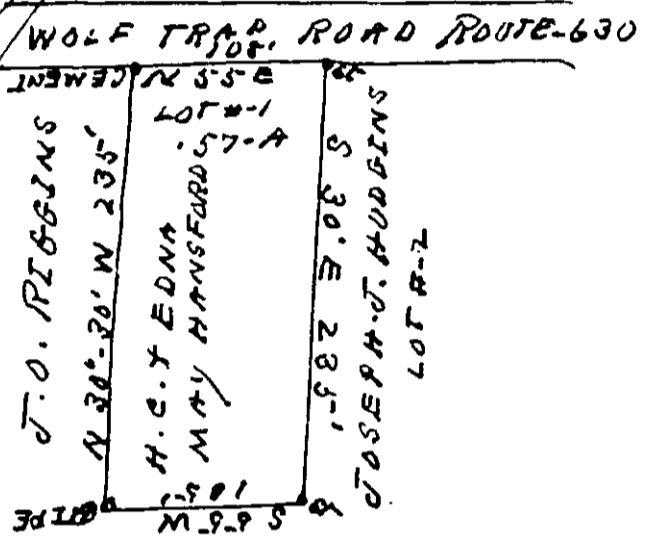 WOLF TRAP. ROAD ROUTE-630
108'
CEMENT
N 55 E
LOT #-1
.57-A
J.O. RIGGINS
N 30°-30' W 235'
H.C. & EDNA
MAY HANSFORD
S 30° E 235'
JOSEPH.J. HUDGINS
LOT #-2
PIPE
105'
S 55 W